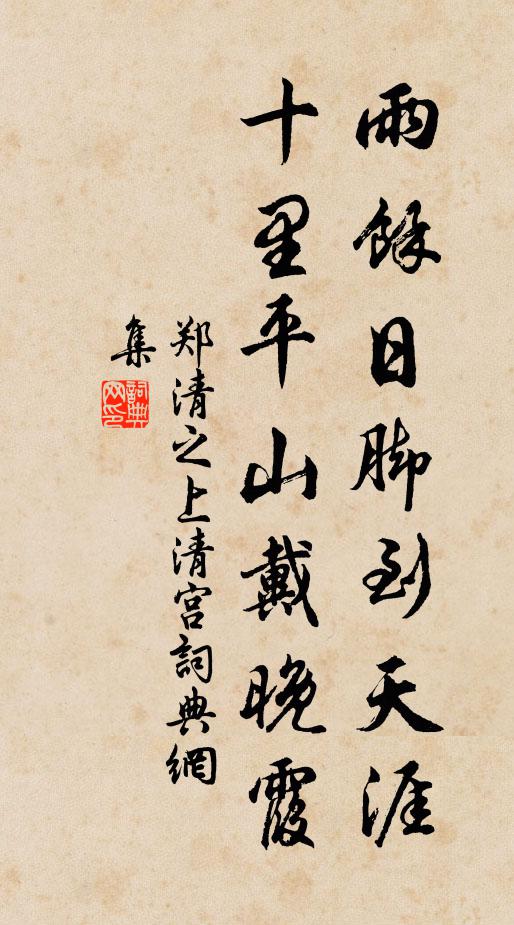 雨餘日脚到天涯
十里平山戴晚霞
郑清之上清宫詞典網
集
詞典网印